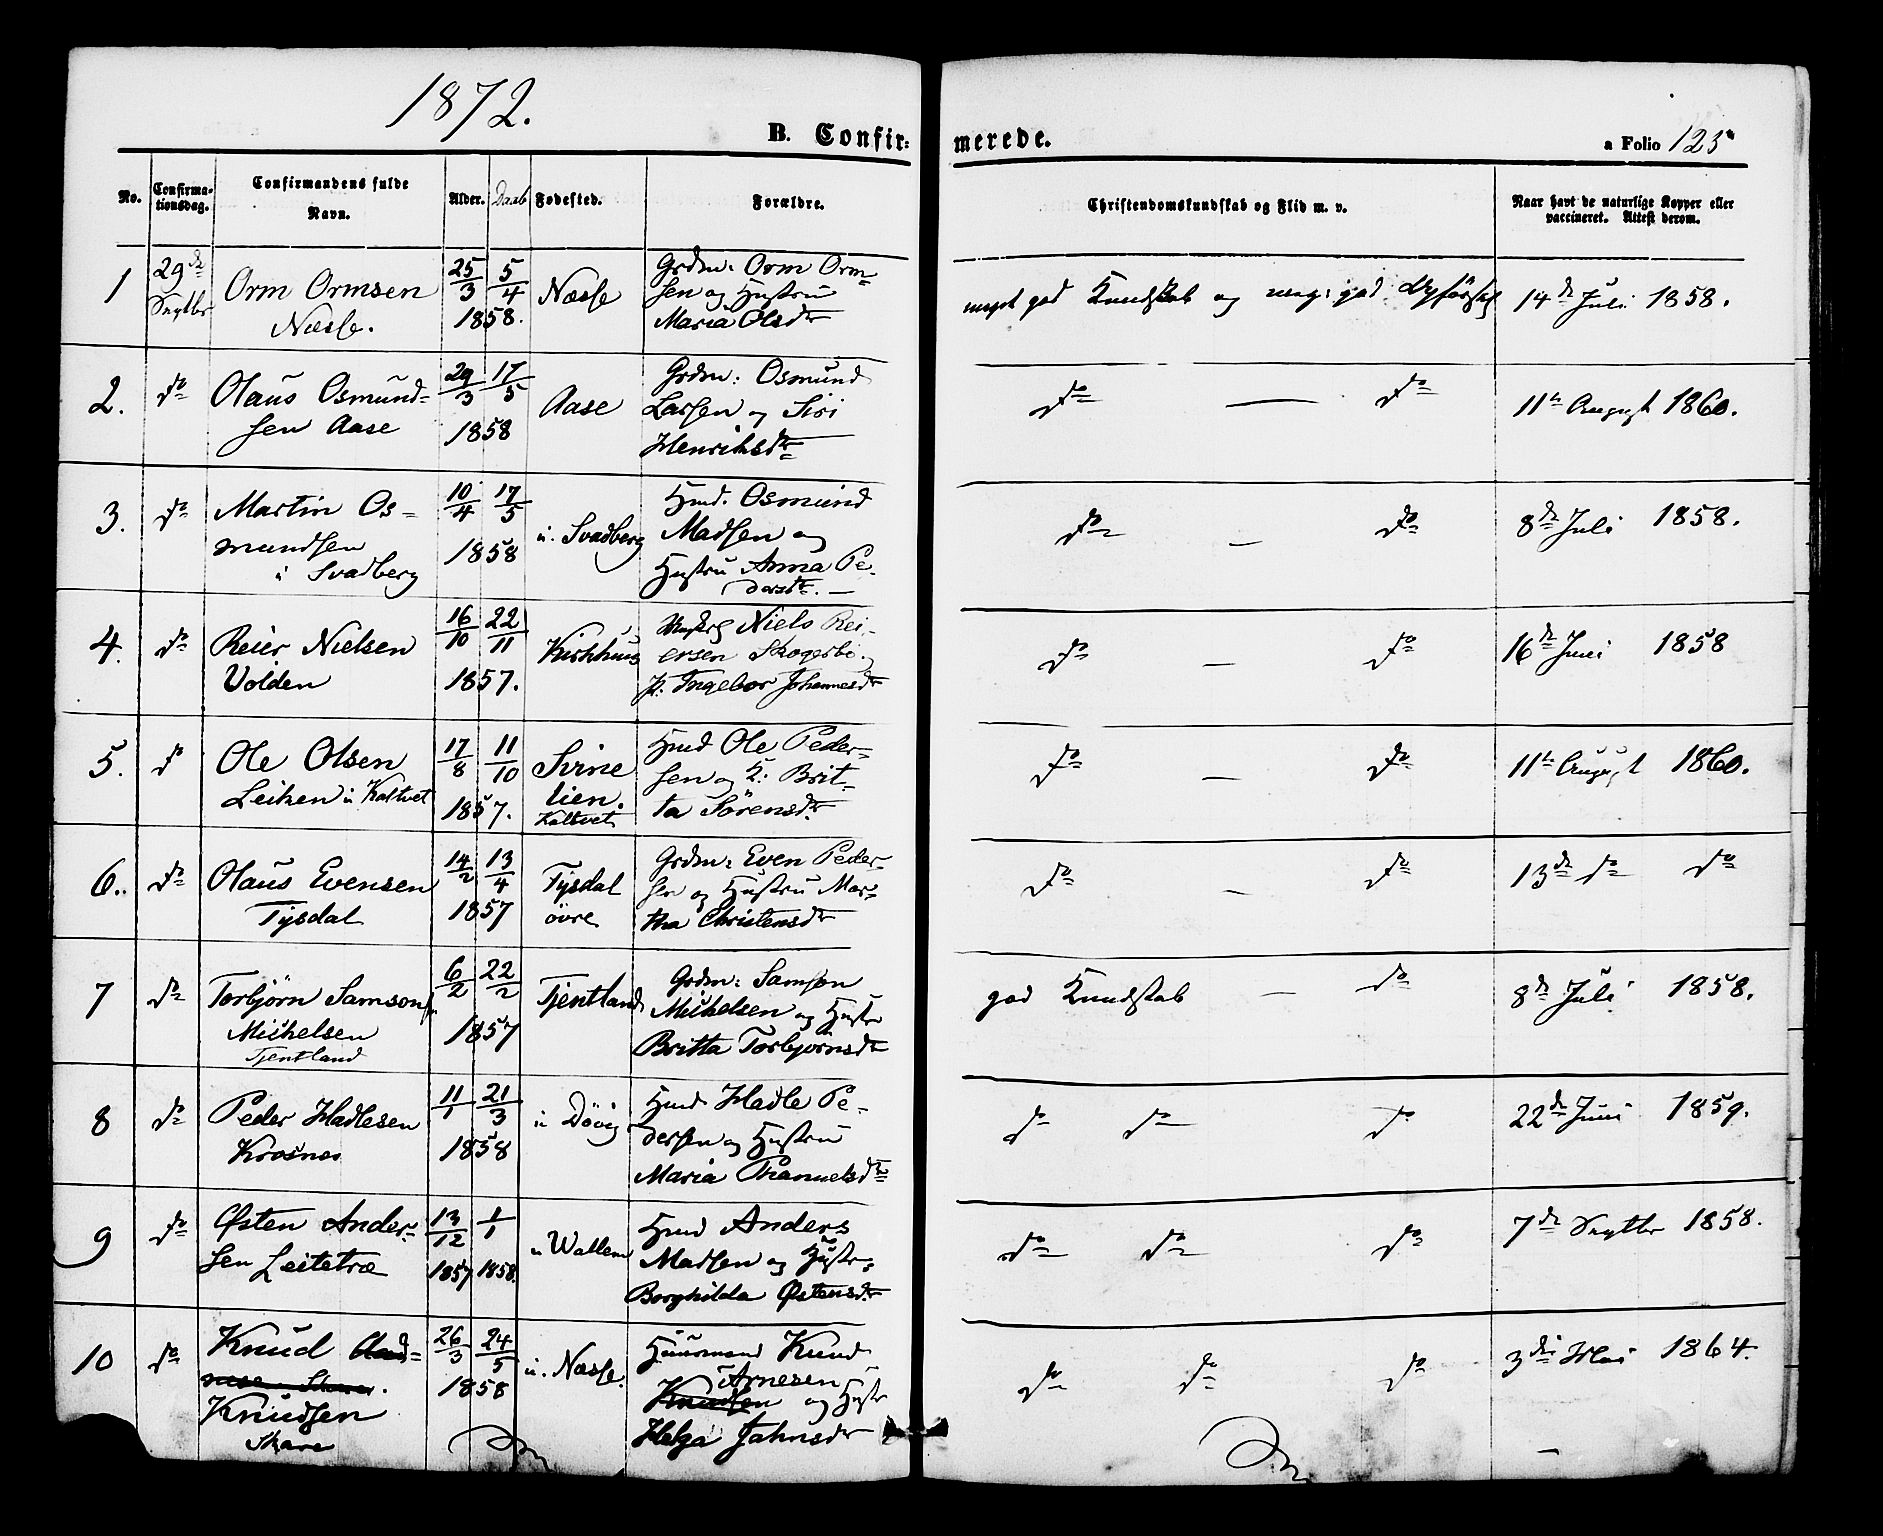 1872.
B. Confir-
merede.
a Folio 123
No.
Confirma-
tionsdag.
Confirmandens fulde
Navn.
Alder.
Daab
Fødested.
Forældre.
Christendomskundskab og Flid m. v.
Naar havt de naturlige Kopper eller
vaccineret. Attest derom.
1
29de
Septbr
Orm Ormsen
Næsse.
25/3 5/4
1858.
Næsse
Grdm: Orm Orm-
sen og Hustru
Maria Olsdtr
meget god Kundskab og meg: god Opførsel
14de Juli 1858.
2.
do
Olaus Osmund-
sen Aase
29/3 17/5
1858
Aase
Grdm: Osmund
Larsen og Siri
Henriksdtr
do — do
11te August 1860.
3.
do
Martin Os-
mundsen
i Svadberg
10/4 17/5
1858
u. Svadberg
Hmd. Osmund
Madsen og
Hustru Anna Pe-
dersdtr. —
do — do
8de Juli 1858.
4.
do
Reier Nielsen
Volden
16/10 22/11
1857.
Kirkhuus
Niels Rei-
ersen
H: Ingebor Johannesdtr
do — do
16de Juni 1858
5.
do
Ole Olsen
Leiken u Kaltvet
17/8 11/10
1857.
Svine
lien.
Kaltvet
Hmd Ole Peder-
sen og H: Brit-
ta Sörensdtr
do — do
11te August 1860.
6..
do
Olaus Evensen
Tysdal
14/2 13/4
1857
Tysdal
övre
Grdm: Even Peder-
sen og Hustru Mar-
tha Christensdtr
do — do
13de do do
7
do
Torbjörn Samsonsen
Michelsen
Tjentland
6/2 22/2
1857
Tjentland
Grdm: Samson
Michelsen og Hustr
Britta Torbjörnsdtr
god Kundskab — do
8de Juli 1858.
8
do
Peder Hadlesen
Krosnes
11/1 21/3
1858
u Dövig
Hmd Hadle Pe-
dersen og Hustru
Maria Thanuelsdtr
do do do
22de Juni 1859.
9
do
Østen Ander-
sen Leitetræ
13/12 1/1
1857 1858.
u Wallem
Hmd Anders
Madsen og Hustr:
Borghilda Østensdtr
do do do
7de Septbr 1858.
10
do
Knud
Knudsen
Skare
26/3 24/5
1858
u. Næsse.
Huusmand Knud
Arnesen
Knudsen og Hustr
Helga Jahnsdtr
do do do
3die Mai 1864.
—